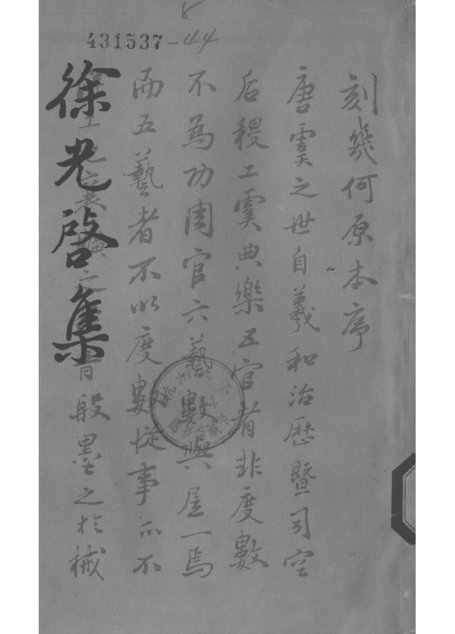 8
431537-44
刻幾何原本序
唐虞之世自羲和治歷暨司空
后稷工虞典樂五官者非度數
不為功周官六藝數與居一焉
而五藝者不以度數從事亦不
工襄曠之音般墨之於械
徐光啓集